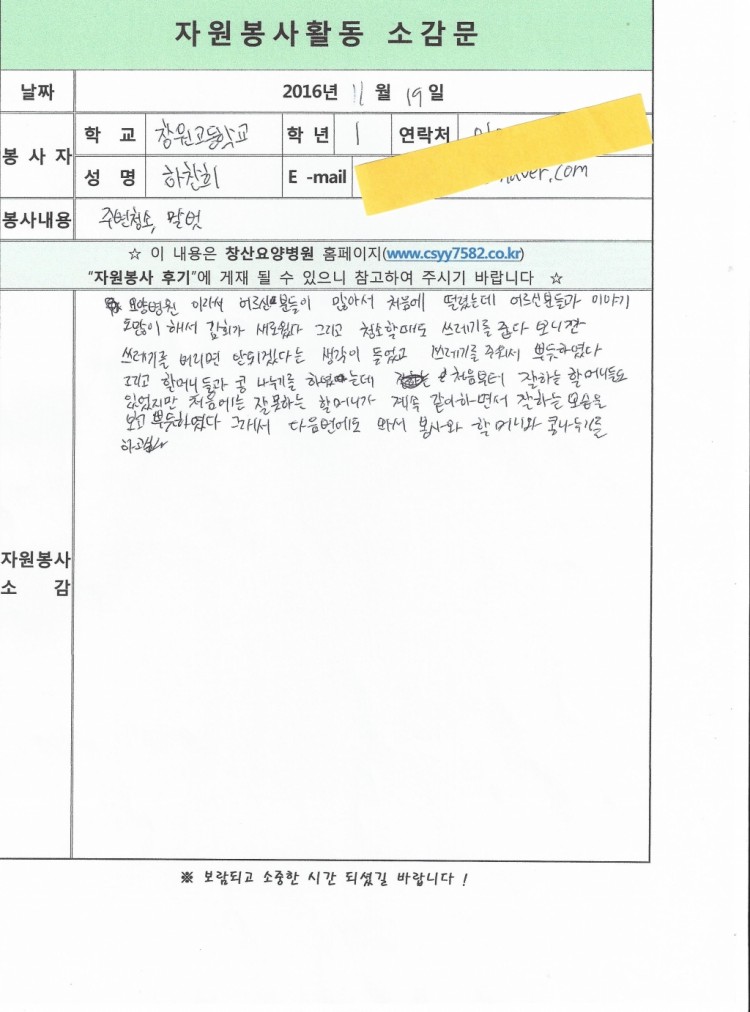 자원봉사활동 소감문
날짜 2016년 11 월 19 일
봉 사 자
학 교 창원고등학교 학 년 1 연락처
성 명 하찬희 E -mail naver.com
봉사내용 주변청소, 말벗
☆ 이 내용은 창산요양병원 홈페이지(www.csyy7582.co.kr)
"자원봉사 후기"에 게재 될 수 있으니 참고하여 주시기 바랍니다 ☆
요양병원 이라서 어르신분들이 많아서 처음에 떨렸는데 어르신분들과 이야기
도많이 해서 감회가 새로웠다 그리고 청소할때도 쓰레기를 줍다 보니깐
쓰레기를 버리면 안되겠다는 생각이 들었고 쓰레기를 주워서 뿌듯하였다
그리고 할머니들과 콩 나누기를 하였는데 처음부터 잘하는 할머니들도
있었지만 처음에는 잘못하는 할머니가 계속 같이하면서 잘하는 모습을
보고 뿌듯하였다 그래서 다음번에도 와서 봉사와 할머니와 콩나누기를
하고싶다
자원봉사
소 감
※ 보람되고 소중한 시간 되셨길 바랍니다 !